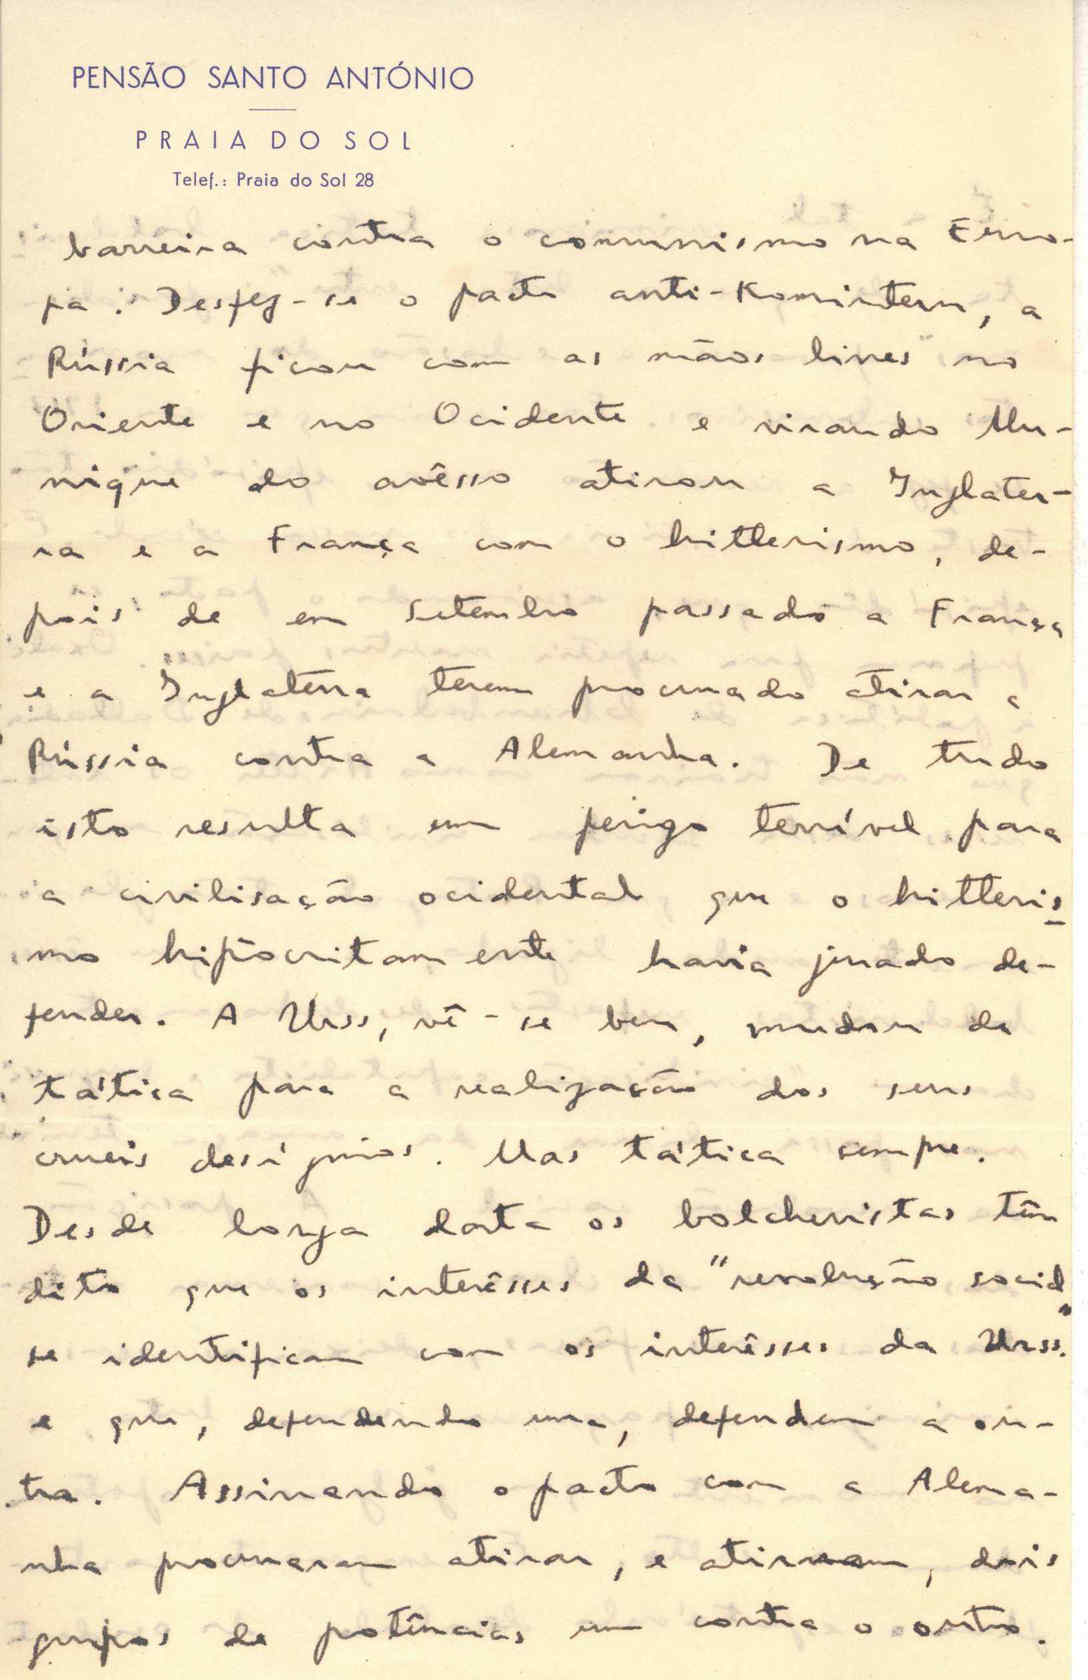 PENSÃO SANTO ANTÓNIO
PRAIA DO SOL
Telef.: Praia do Sol 28
barreira contra o comunismo na Euro-
pa. Desfez-se o pacto anti-Komintern, a
Rússia ficou com as mãos livres no
Oriente e no Ocidente e virando Mu-
nique do avêsso atirou a Inglater-
ra e a França com o hitlerismo, de-
pois de em Setembro passado a França
e a Inglaterra terem procurado atirar a
Rússia contra a Alemanha. De tudo
isto resulta um perigo terrível para
a civilisação ocidental que o hitleris
mo hipòcritamente havia jurado de-
fender. A Urss, vê-se bem, mudou de
táctica para a realização dos seus
crueis desígnios. Mas tática sempre.
Desde longa data os bolchevistas têm
dito que os interêsses da "revolução social"
se identificam com os interêsses da Urss.
e que, defendendo uma, defendem a ou-
tra. Assinando o pacto com a Alema-
nha procuraram atirar, e atiraram, dois
grupos de potências um contra o outro.